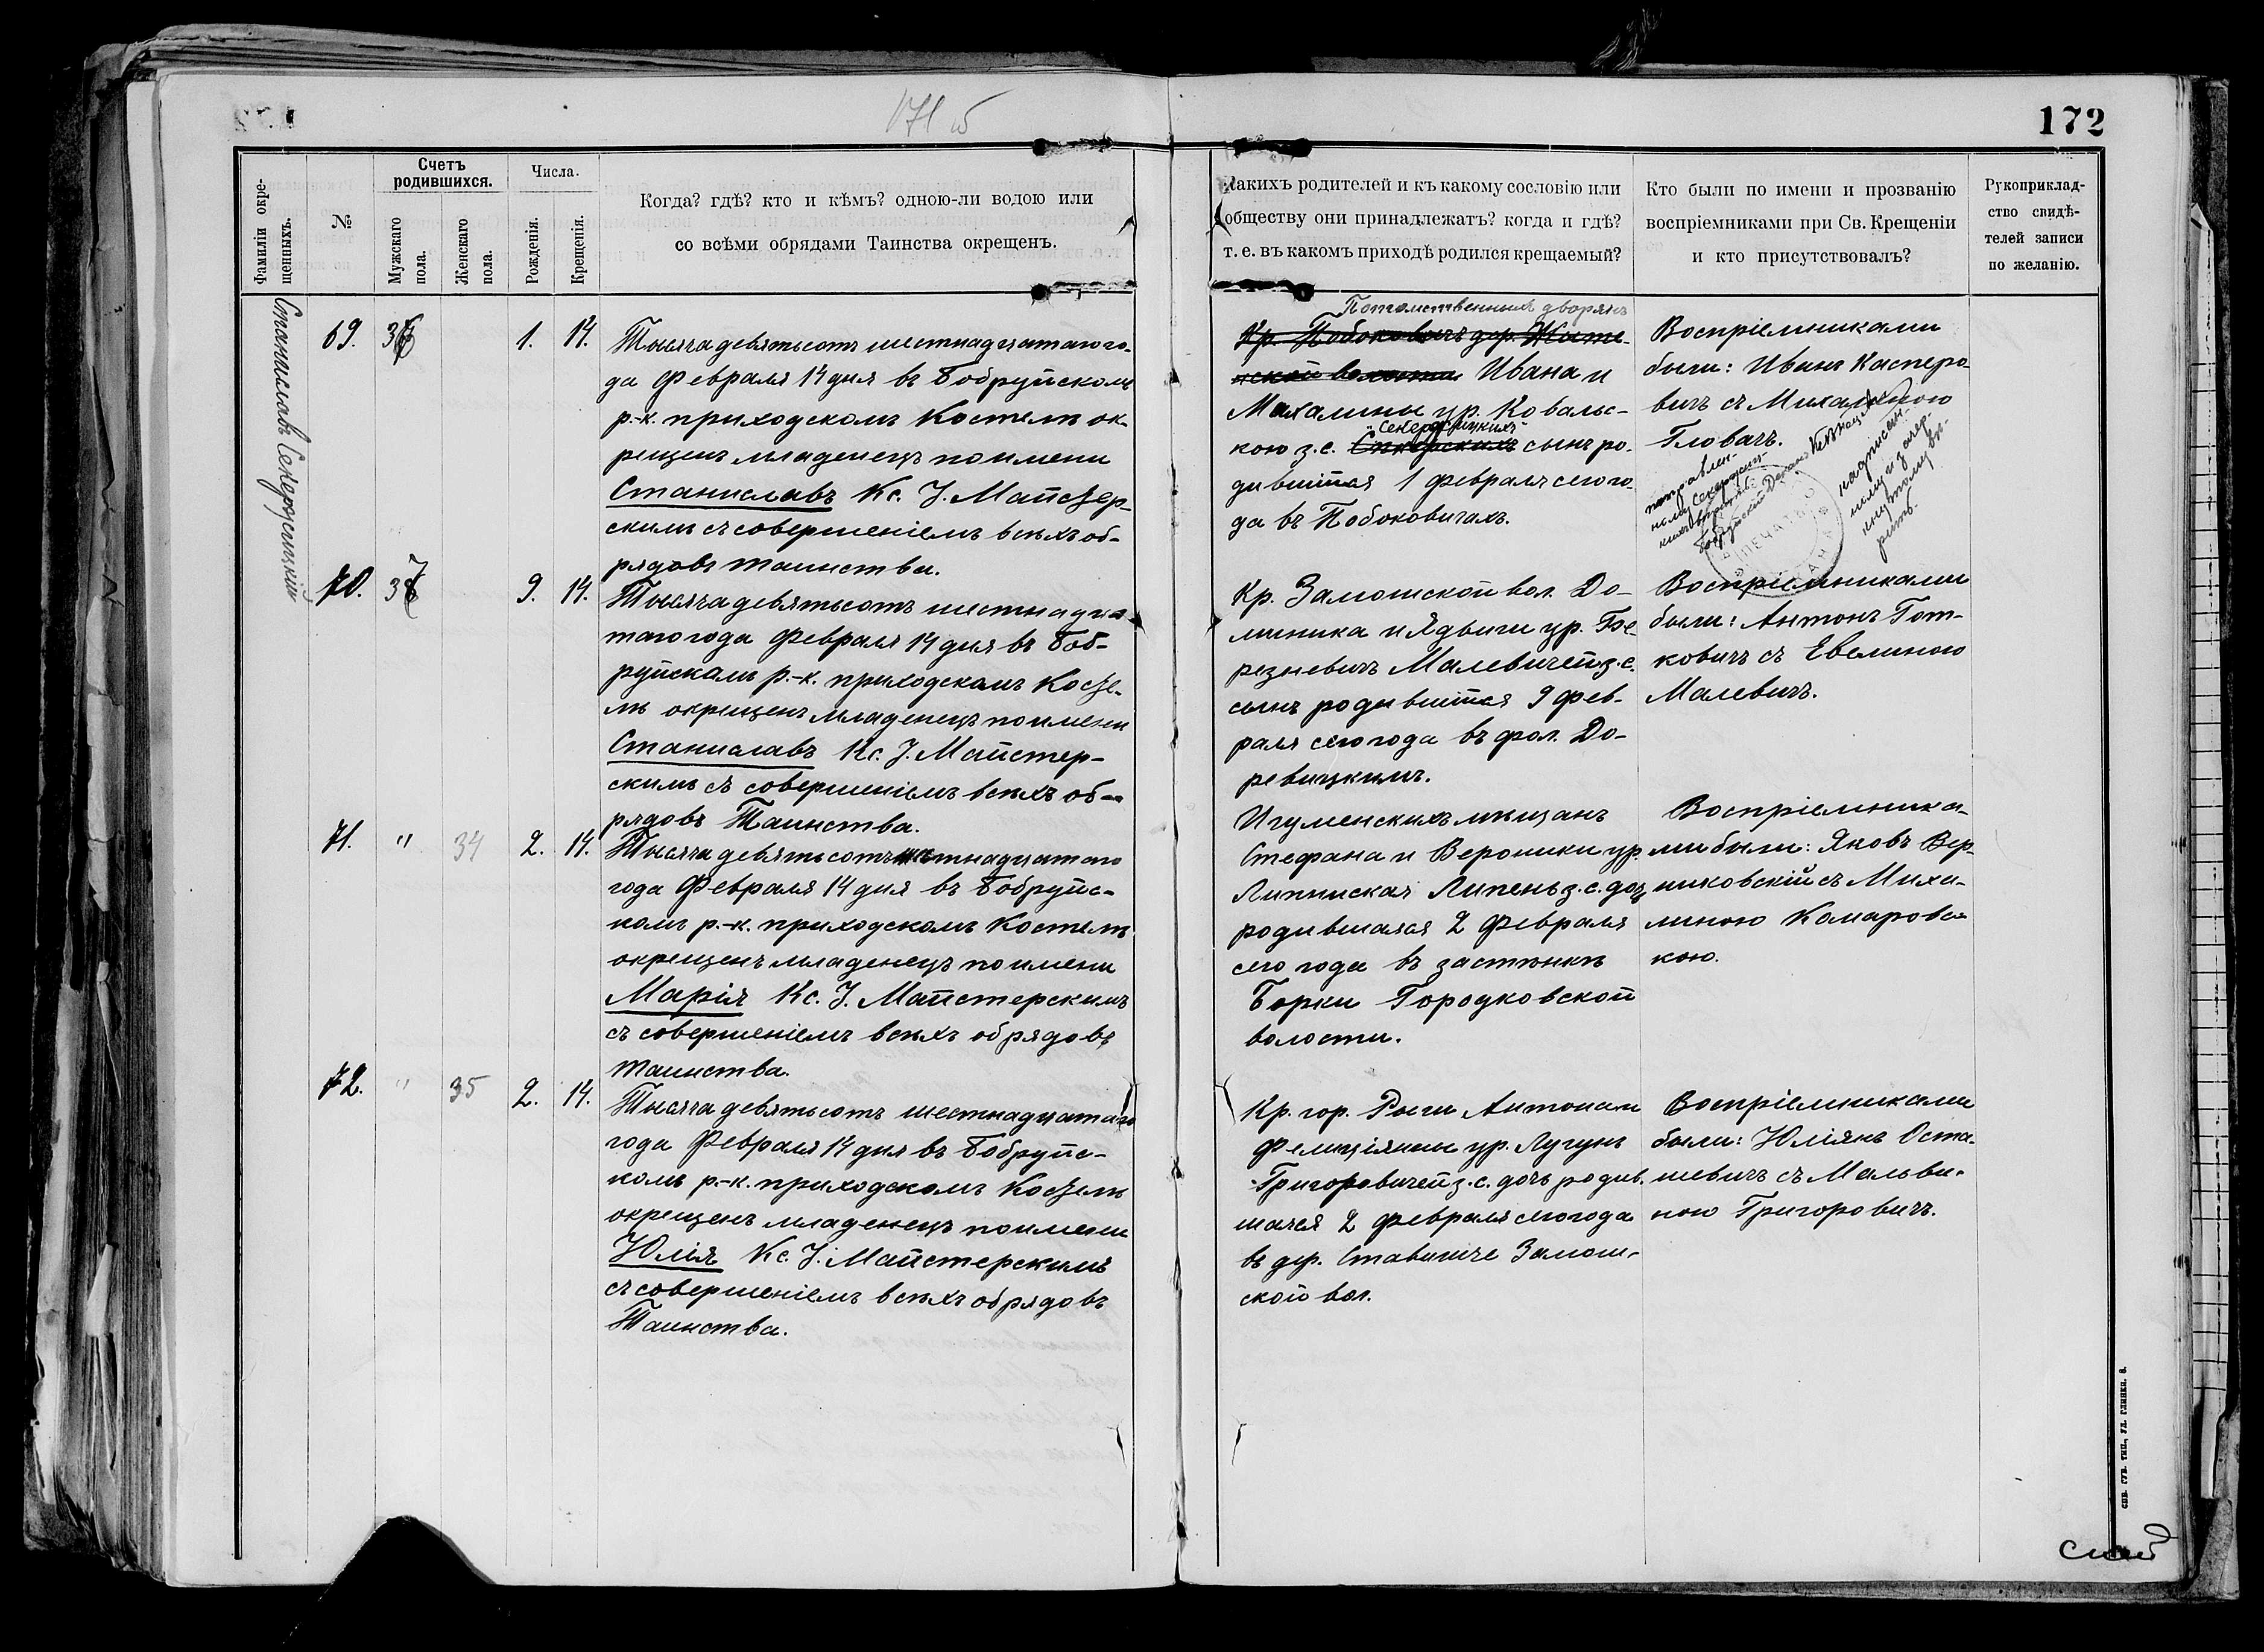 171 об
172
Фамиліи окре-
щенныхъ.
№
Счетъ
родившихся.
Мужскаго
пола.
Женскаго
пола.
Числа.
Рожденія.
Крещенія.
Когда? гдѣ? кто и кѣмъ? одною-ли водою или
со всѣми обрядами Таинства окрещенъ.
Какихъ родителей и къ какому сословію или
обществу они принадлежатъ? когда и гдѣ?
т. е. въ какомъ приходѣ родился крещаемый?
Кто были по имени и прозванію
воспріемниками при Св. Крещеніи
и кто присутствовалъ?
Рукоприклад-
ство свидѣ-
телей записи
по желанію.
Станиславъ
69.
36
1.
14.
Тысяча девятьсотъ шестнадцатаго го-
да Февраля 14 дня въ Бобруйскомъ
р.-к. приходскомъ Костелѣ ок-
рещенъ младенецъ по имени
Станиславъ Кс. І. Майстер-
скимъ съ совершеніемъ всѣхъ об-
рядовъ таинства.
Потомственныхъ дворянъ
Кр. Побоковичъ дер.
волости Ивана и
Михалины ур. Ковальс-
кою з. с. сынъ ро-
дившійся 1 февраля сего го-
да въ Побоковичахъ.
Воспріемниками
были: Иванъ Касперо-
вичъ съ Михалиною
Гловачъ.
70.
37
9.
14.
Тысяча девятьсотъ шестнадца-
таго года Февраля 14 дня въ Боб-
руйскомъ р.-к. приходскомъ Косте-
лѣ окрещенъ младенецъ по имени
Станиславъ Кс. І. Майстер-
скимъ съ совершеніемъ всѣхъ об-
рядовъ Таинства.
Кр. Замошской вол. До-
миника и Ядвиги ур. Бе-
резневичъ Малевичей з. с.
сынъ родившійся 9 фев-
раля сего года въ фол. До-
ревицкимъ.
Воспріемниками
были: Антонъ Гот-
ковичъ съ Евелиною
Малевичъ.
71.
"
34
2.
14.
Тысяча девятьсотъ шестнадцатаго
года Февраля 14 дня въ Бобруйс-
комъ р.-к. приходскомъ Костелѣ
окрещенъ младенецъ по имени
Марія Кс. І. Майстерскимъ
съ совершеніемъ всѣхъ обрядовъ
таинства.
Игуменскихъ мѣщанъ
Стефана и Вероники ур.
Липнискал Липень з. с. дочь
родившаяся 2 Февраля
сего года въ застѣнкѣ
Борки Городковской
волости.
Воспріемника-
ми были: Яковъ Вер-
никовскій съ Миха-
линою Комаровс-
кою.
72.
"
35
2.
14.
Тысяча девятьсотъ шестнадцатаго
года Февраля 14 дня въ Бобруйс-
комъ р.-к. приходскомъ Костелѣ
окрещенъ младенецъ по имени
Юлія Кс. І. Майстерскимъ
съ совершеніемъ всѣхъ обрядовъ
Таинства.
Кр. гор. Роги Антона и
Фелиціяны ур. Лугунъ
Григоровичей з. с. дочь родив-
шаяся 2 февраля сего года
въ дер. Ставище Замош-
ской вол.
Воспріемниками
были: Юліянъ Оста-
шевичъ съ Мальви-
ною Григоровичъ.
СПБ. ГУБ. ТИП., УЛ. ГЛИНКИ, 8.